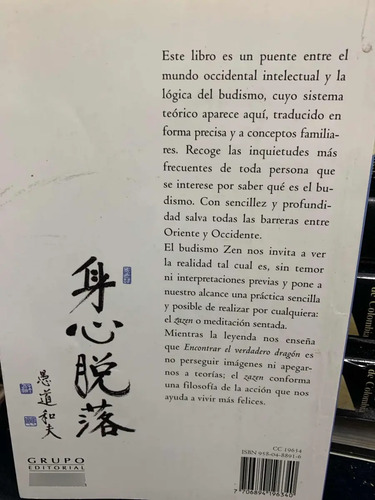 Este libro es un puente entre el
mundo occidental intelectual y la
lógica del budismo, cuyo sistema
teórico aparece aquí, traducido en
forma precisa y a conceptos familia-
res. Recoge las inquietudes más
frecuentes de toda persona que
se interese por saber qué es el bu-
dismo. Con sencillez y profundi-
dad salva todas las barreras entre
Oriente y Occidente.
El budismo Zen nos invita a ver
la realidad tal cual es, sin temor
ni interpretaciones previas y pone a
nuestro alcance una práctica sencilla
y posible de realizar por cualquiera:
el zazen o meditación sentada.
Mientras la leyenda nos enseña
que Encontrar el verdadero dragón es
no perseguir imágenes ni apegar-
nos a teorías; el zazen conforma
una filosofía de la acción que nos
ayuda a vivir más felices.
身心脱落
愚道和夫
GRUPO
EDITORIAL
CC 19634
ISBN 958-04-8891-6
7 706894 196340
de Colombia
de Colombia